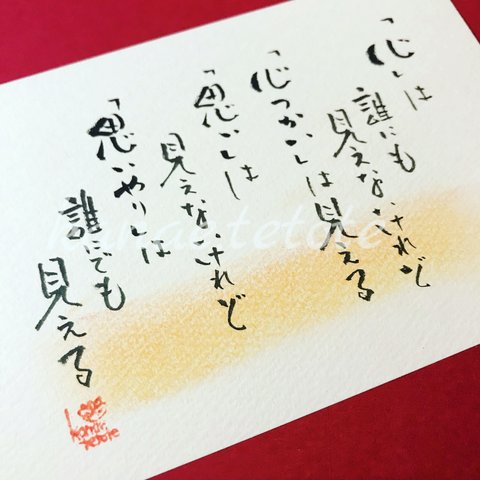 「心」は
誰にも
見えないけれど
「心づかい」は見える
「思い」は
見えないけれど
「思いやり」は
誰にでも
見える